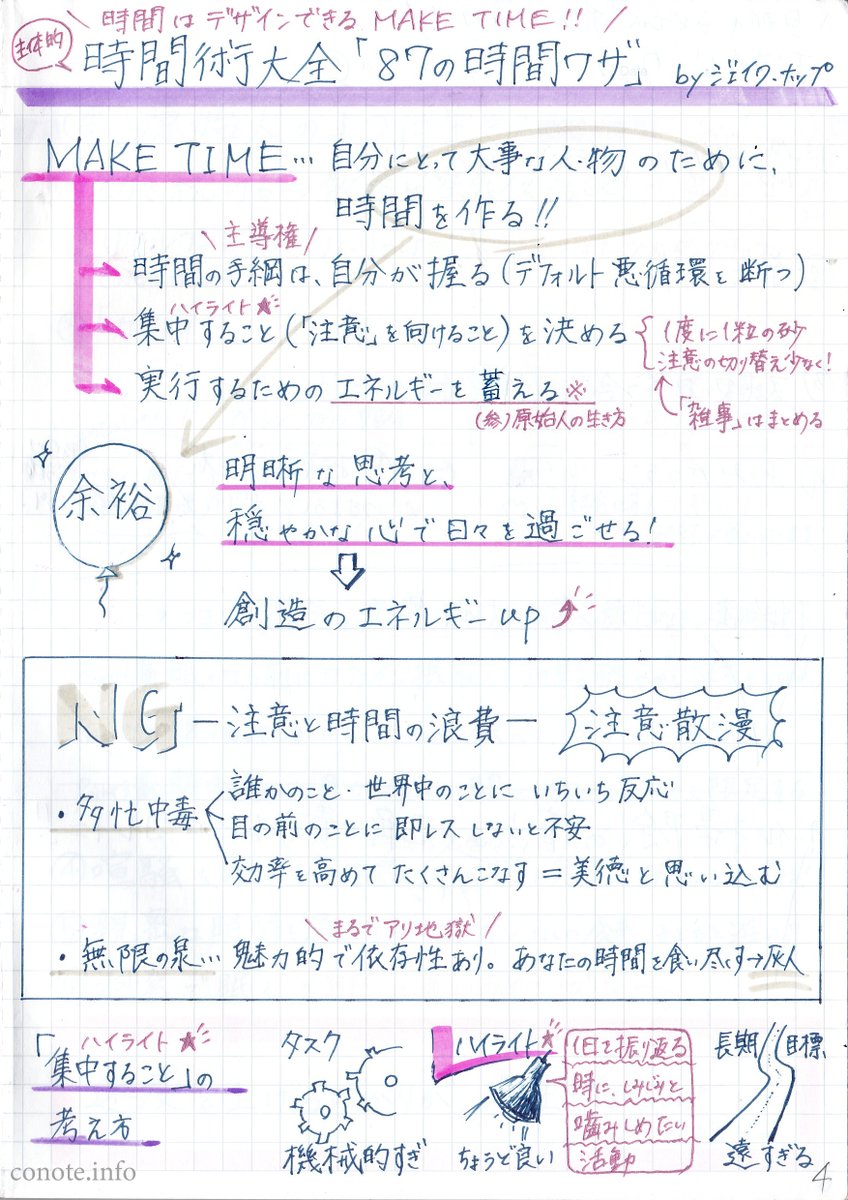 \ 時間はデザインできる MAKE TIME!! /
主体的
時間術大全「87の時間ワザ」 by ジェイク・ナップ
MAKE TIME… 自分にとって大事な人・物のために、
時間を作る!!
\ 主導権 /
時間の手綱は、自分が握る(デフォルト悪循環を断つ)
ハイライト★
集中すること(「注意」を向けること)を決める
1度に1粒の砂
注意の切り替え少なく!
「雑事」はまとめる
実行するためのエネルギーを蓄える※
(参)原始人の生き方
余裕
明晰な思考と、
穏やかな心で日々を過ごせる!
⇩
創造のエネルギーup
NG —注意と時間の浪費—
注意散漫
・多忙中毒
誰かのこと・世界中のことに いちいち反応
目の前のことに即レスしないと不安
効率を高めて たくさんこなす=美徳と思い込む
\ まるでアリ地獄 /
・無限の泉… 魅力的で依存性あり。あなたの時間を食い尽くす→灰人
ハイライト★
「集中すること」の
考え方
タスク
機械的すぎ
ハイライト★
ちょうど良い
1日を振り返る
時に、しみじみと
噛みしめたい
活動
長期 目標
遠すぎる
conote.info
4